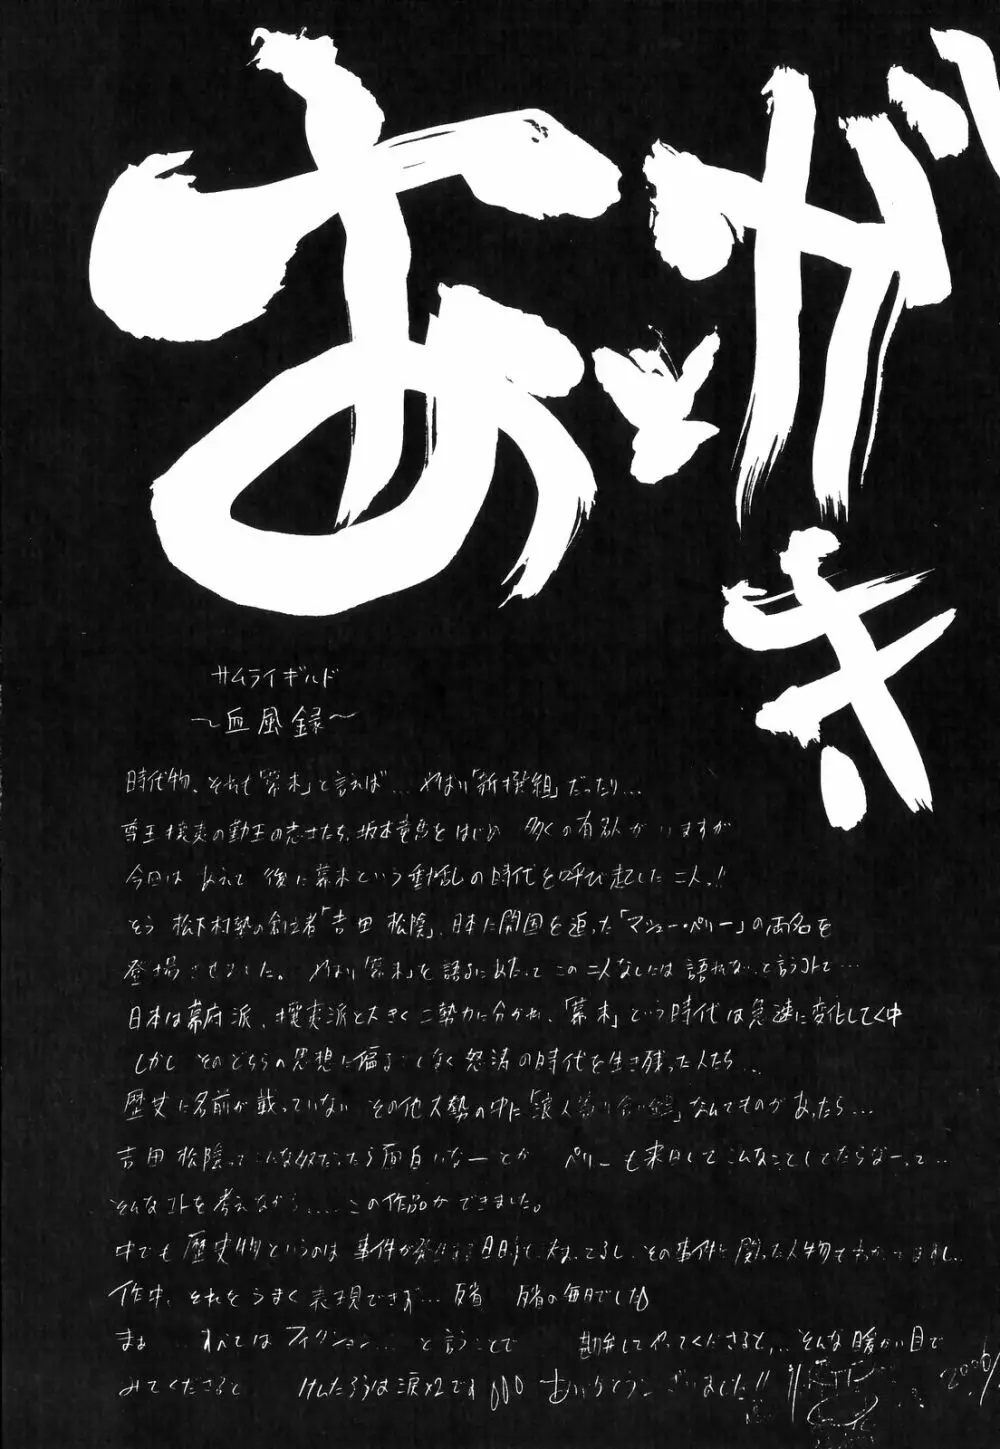 あとがき
サムライギルド
~血風録~
時代物、それも「幕末」と言えば… やはり「新撰組」だったり…
尊王攘夷の勤王の志士たち、坂本竜馬をはじめ 多くの有名がいますが
今回は あえて 後に幕末という動乱の時代を呼び起した二人っ!!
そう 松下村塾の創立者「吉田 松陰」、日本に開国を迫った「マシュー・ペリー」の両名を
登場させました。 やはり「幕末」を語るにあたって この二人なしには語れないと言うコトで…
日本は幕府派、攘夷派と大きく二勢力に分かれ、「幕末」という時代は急速に変化してく中
しかし そのどちらの思想に偏ることなく 怒涛の時代を生き残った人たち…
歴史に名前が載っていない その他大勢の中に「浪人」なんてものがあったら…
吉田 松陰ってこんな奴だったら面白いなーとか ペリーも来日してこんなことしてたらなーって…
そんなコトを考えながら.... この作品ができました。
中でも 歴史物というのは 事件が発生する日時も決まってるし、その事件に関った人物もわかってますし…
作中、それをうまく表現できず… 反省 反省の毎日でした
まぁ … すべてはフィクション… と言うことで 勘弁してやってくださると… そんな暖かい目で
みてくださると けんたろうは涙×2です ありがとうございました!!